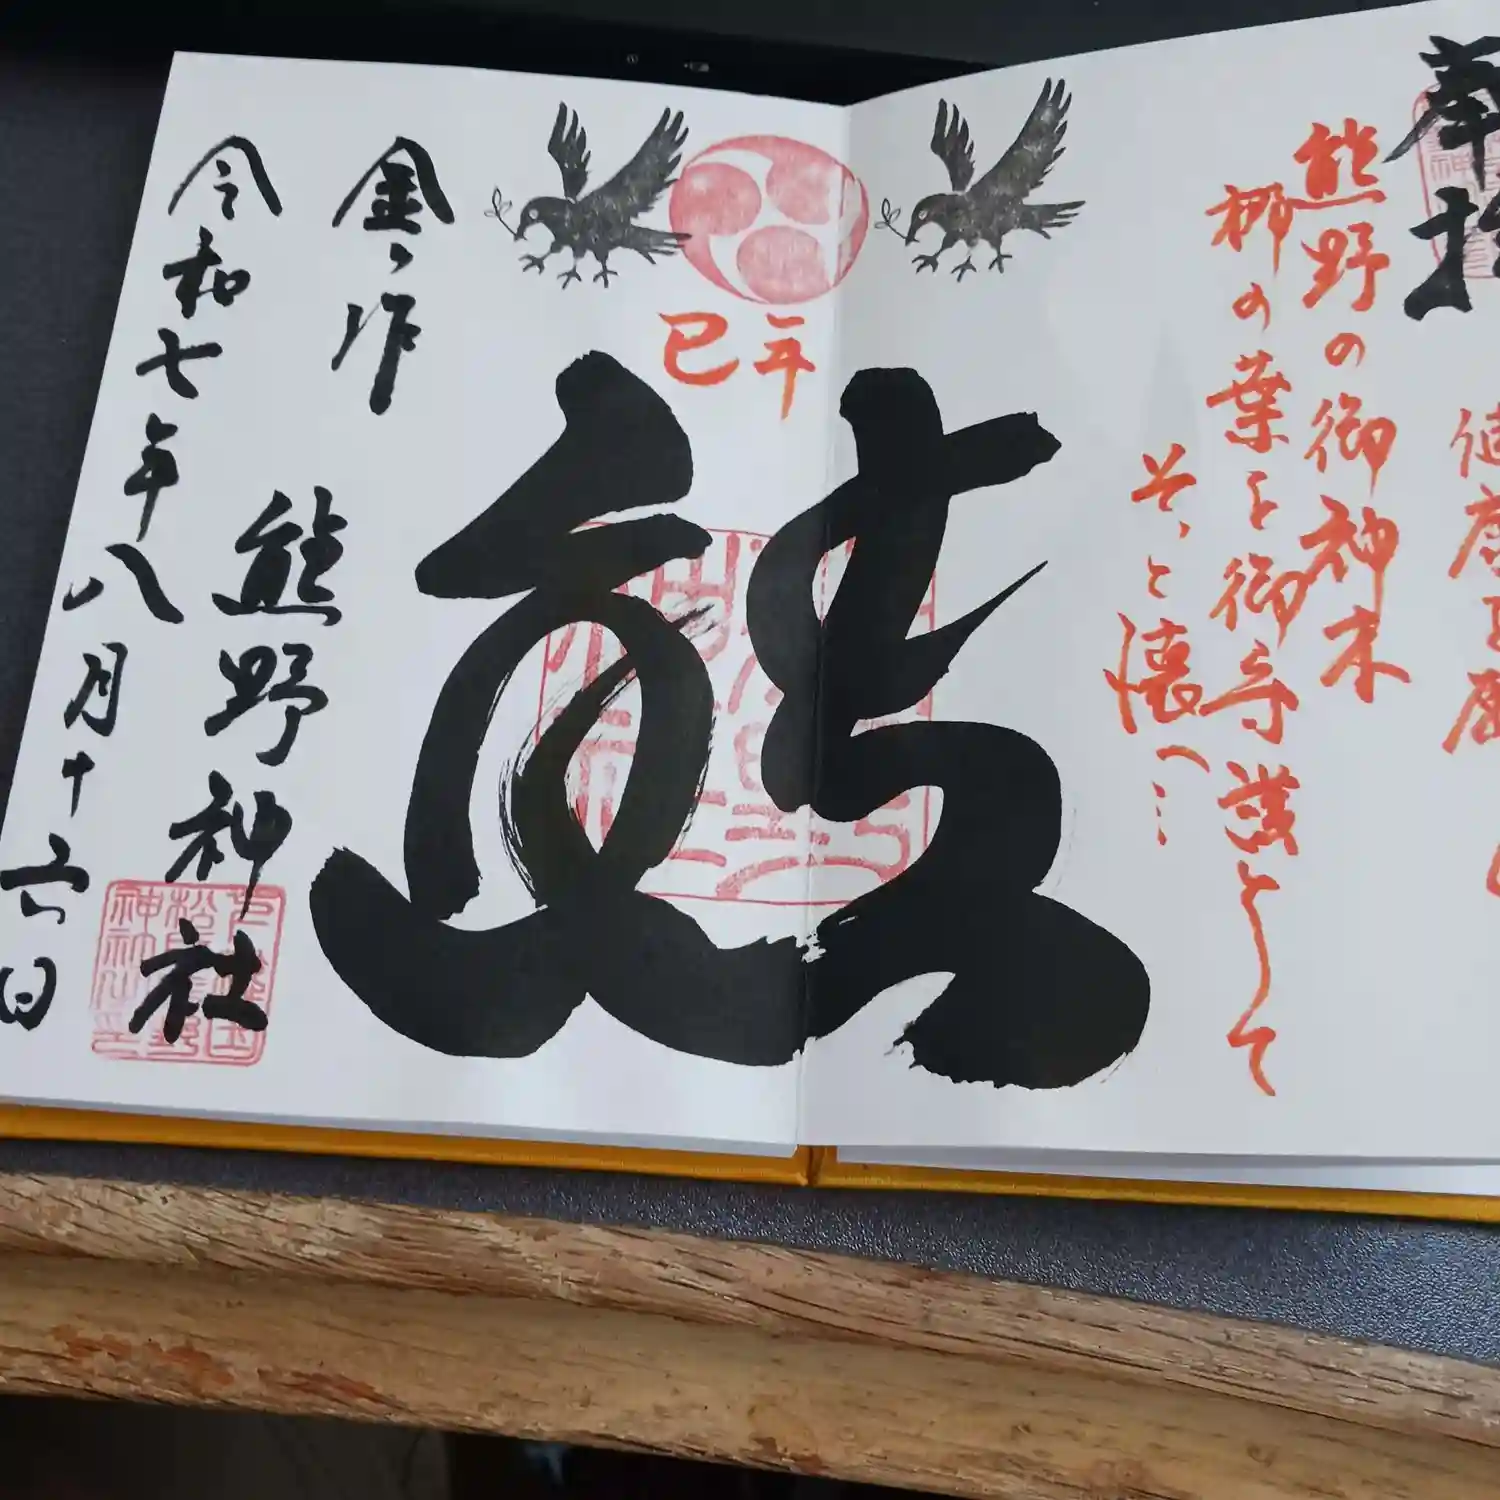 奉拝
健康
熊野の御神木
梛の葉を御守護として
そっと懐へ…
巳年
熊
金ヶ作
熊野神社
令和七年八月十六日